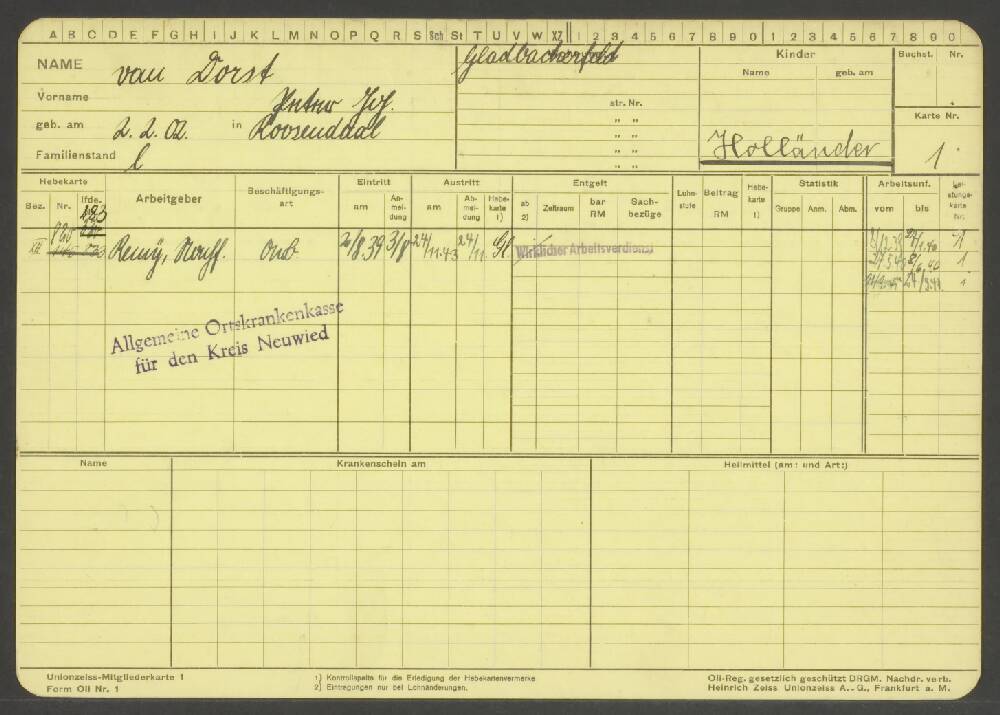 A B C D E F G H I J K L M N O P Q R S Sch St T U V W XZ 1 2 3 4 5 6 7 8 9 0 1 2 3 4 5 6 7 8 9 0
NAME van Dorst
Gladbacherfeld
Kinder
Name geb. am
Buchst. Nr.
Vorname Jos.
str. Nr.
Karte Nr.
geb. am 2. 2. 02. in Roosendaal
„ „
„ „
Holländer
1
Familienstand l
„ „
Hebekarte
Bez. Nr. lfde.
Arbeitgeber
Beschäftigungsart
Eintritt
am Anmeldung
Austritt
am Abmeldung Hebekarte 1)
Entgelt
ab 2) Zeitraum bar RM Sachbezüge
Lohnstufe
Beitrag RM
Hebekarte 1)
Statistik
Gruppe Anm. Abm.
Arbeitsunf.
vom bis
Leistungskarte Nr.
193
XII Remy, 2/8.39 3/8 24/11.43 24/11 Wirklicher Arbeitsverdienst
1
1
Allgemeine Ortskrankenkasse
für den Kreis Neuwied
Name Krankenschein am Heilmittel (am: und Art:)
Unionzeiss-Mitgliederkarte 1
Form Oli Nr. 1
1) Kontrollspalte für die Erledigung der Hebekartenvermerke
2) Eintragungen nur bei Lohnänderungen.
Oli-Reg. gesetzlich geschützt DRGM. Nachdr. verb.
Heinrich Zeiss Unionzeiss A.-G., Frankfurt a. M.